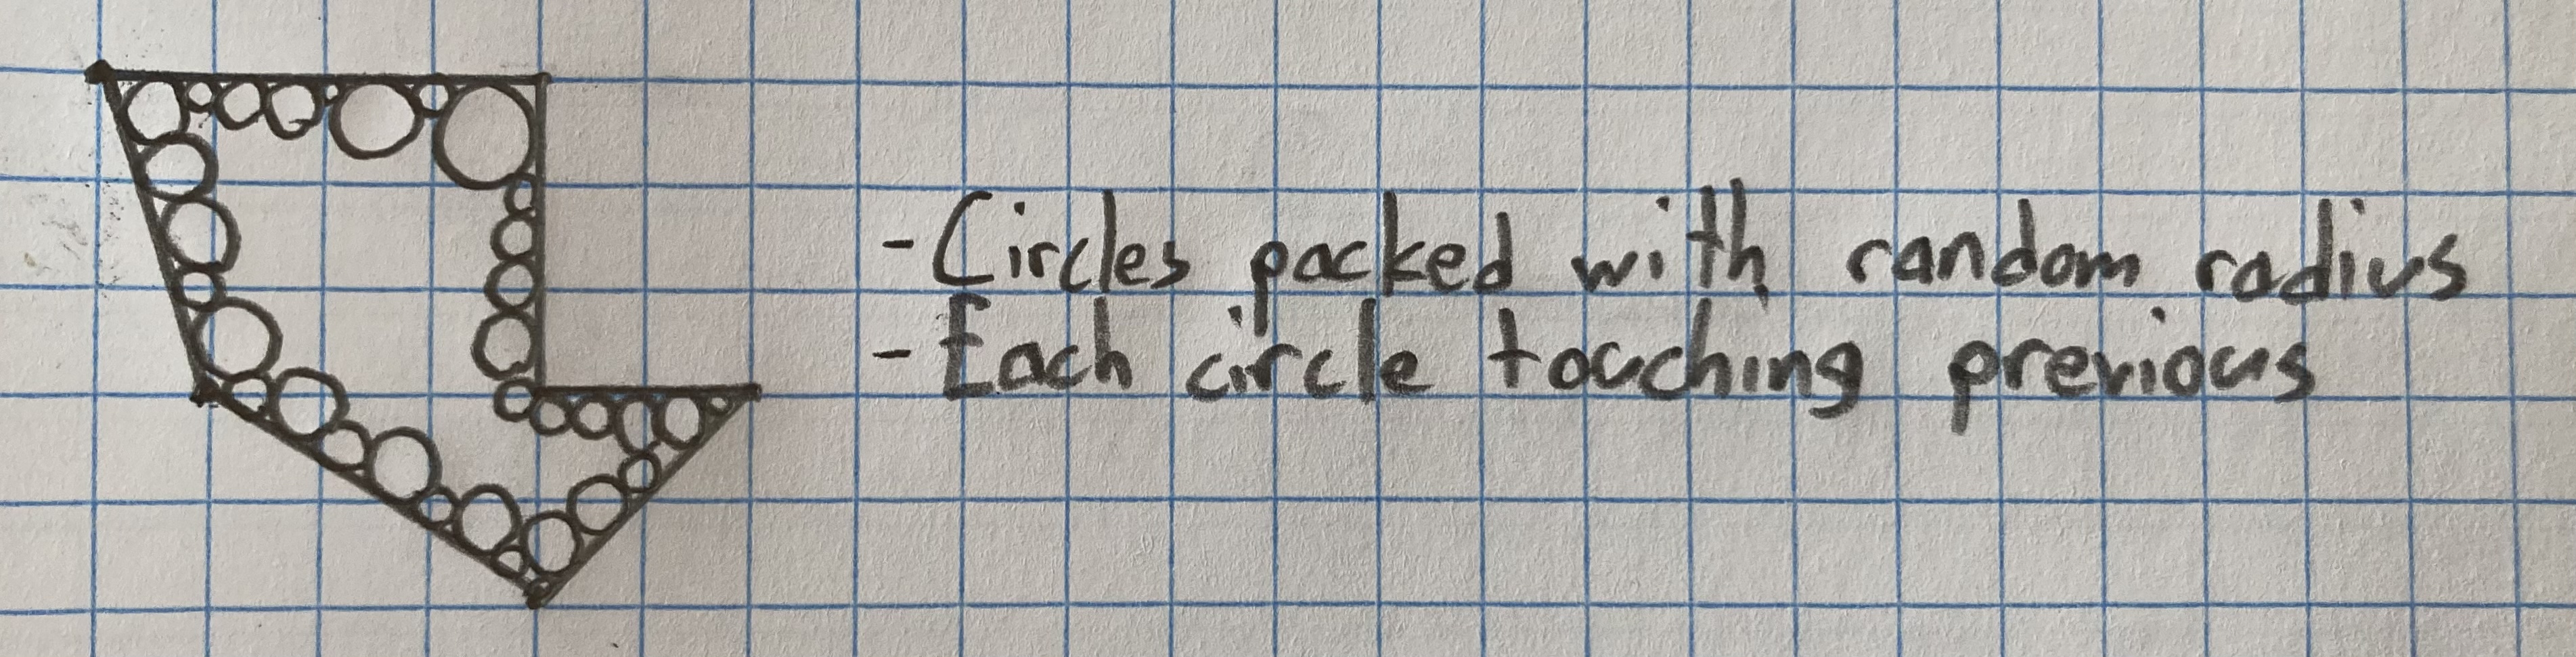 -Circles packed with random radius
-Each circle touching previous